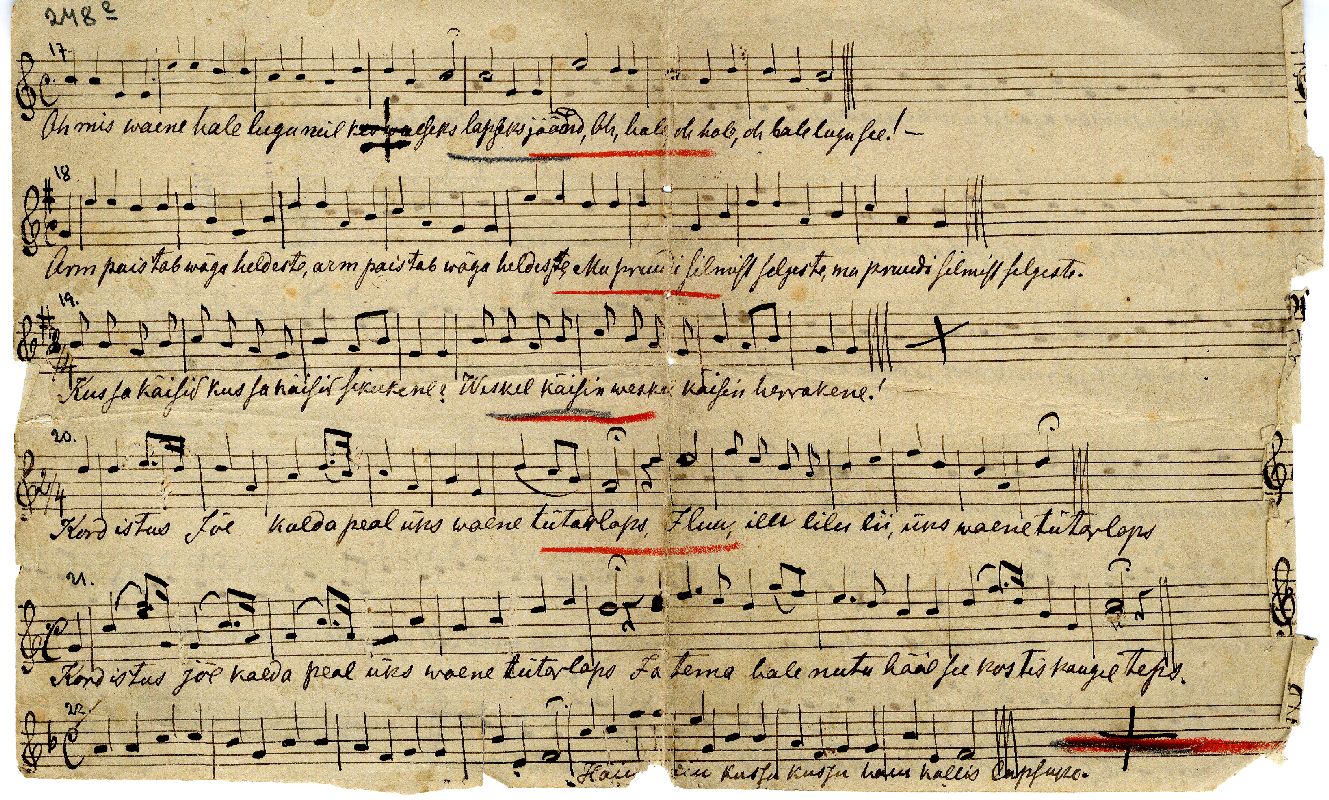 248e
17.
Oh mis waene hale lugu meil lapseks jäänd, Oh, hale oh hale, oh hale lugu see! —
18
Arm paistab wäga heldeste, arm paistab wäga heldeste Mu pruudi silmist selgeste, mu pruudi silmist selgeste.
19.
2/4
Kus sa käisid kus sa käisid sikukene? Weskel käisin weskel käisin herrakene!
20.
2/4
Kord istus Jõe kalda peal üks waene tütarlaps, Iluu, illu lilu lii, üks waene tütarlaps
21.
Kord istus jõe kalda peal üks waene tütarlaps Ja tema hale nutu hääl see kostis kaugele
22.
kussu kussu kallis lapsuke.